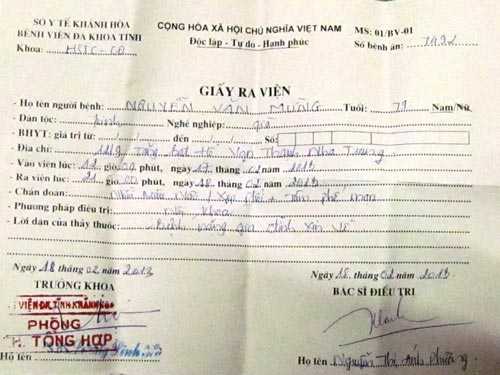 SỞ Y TẾ KHÁNH HÒA
BỆNH VIỆN ĐA KHOA TỈNH
Khoa: HSTC-CĐ
CỘNG HÒA XÃ HỘI CHỦ NGHĨA VIỆT NAM
Độc lập - Tự do - Hạnh phúc
MS: 01/BV-01
Số bệnh án: 7492
GIẤY RA VIỆN
- Họ tên người bệnh: NGUYỄN VĂN MỪNG Tuổi: 71 Nam/Nữ
- Dân tộc: kinh Nghề nghiệp: già
- BHYT: giá trị từ: / / đến / / Số
- Địa chỉ: Vạn Thạnh Nha Trang
- Vào viện lúc: giờ 00 phút, ngày 17 tháng 02 năm 2013
- Ra viện lúc: 21 giờ 00 phút, ngày 18 tháng 02 năm 2013
- Chẩn đoán: Nhồi máu não / phổi mạn
- Phương pháp điều trị: Nội khoa
- Lời dặn của thầy thuốc: Bệnh nặng gia đình xin về
Ngày 18 tháng 02 năm 2013
TRƯỞNG KHOA
VIỆN ĐK TỈNH KHÁNH HÒA
PHÒNG
TỔNG HỢP
Họ tên
Ngày 18 tháng 02 năm 2013
BÁC SĨ ĐIỀU TRỊ
Họ tên Nguyễn Thị Ánh